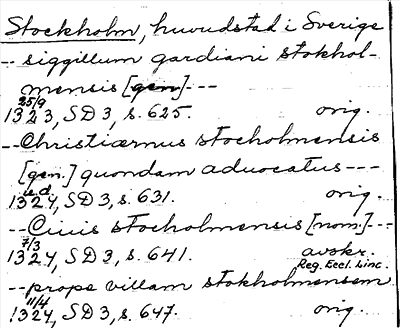 Stockholm, huvudstad i Sverige
-- siggillum gardiani stokhol-
mensis [gen] ---
25/9
1323, SD 3, s. 625. orig.
-- Christiærnus stocholmensis
[gen.] quondam aduocatus ---
u.d.
1324, SD 3, s. 631. orig.
-- Ciuis stocholmensis [nom.] --
7/3
1324, SD 3, s. 641. avskr.
Reg. Eccl. Linc.
-- prope villam stokholmensem
11/4
1324, SD 3, s. 647. orig.